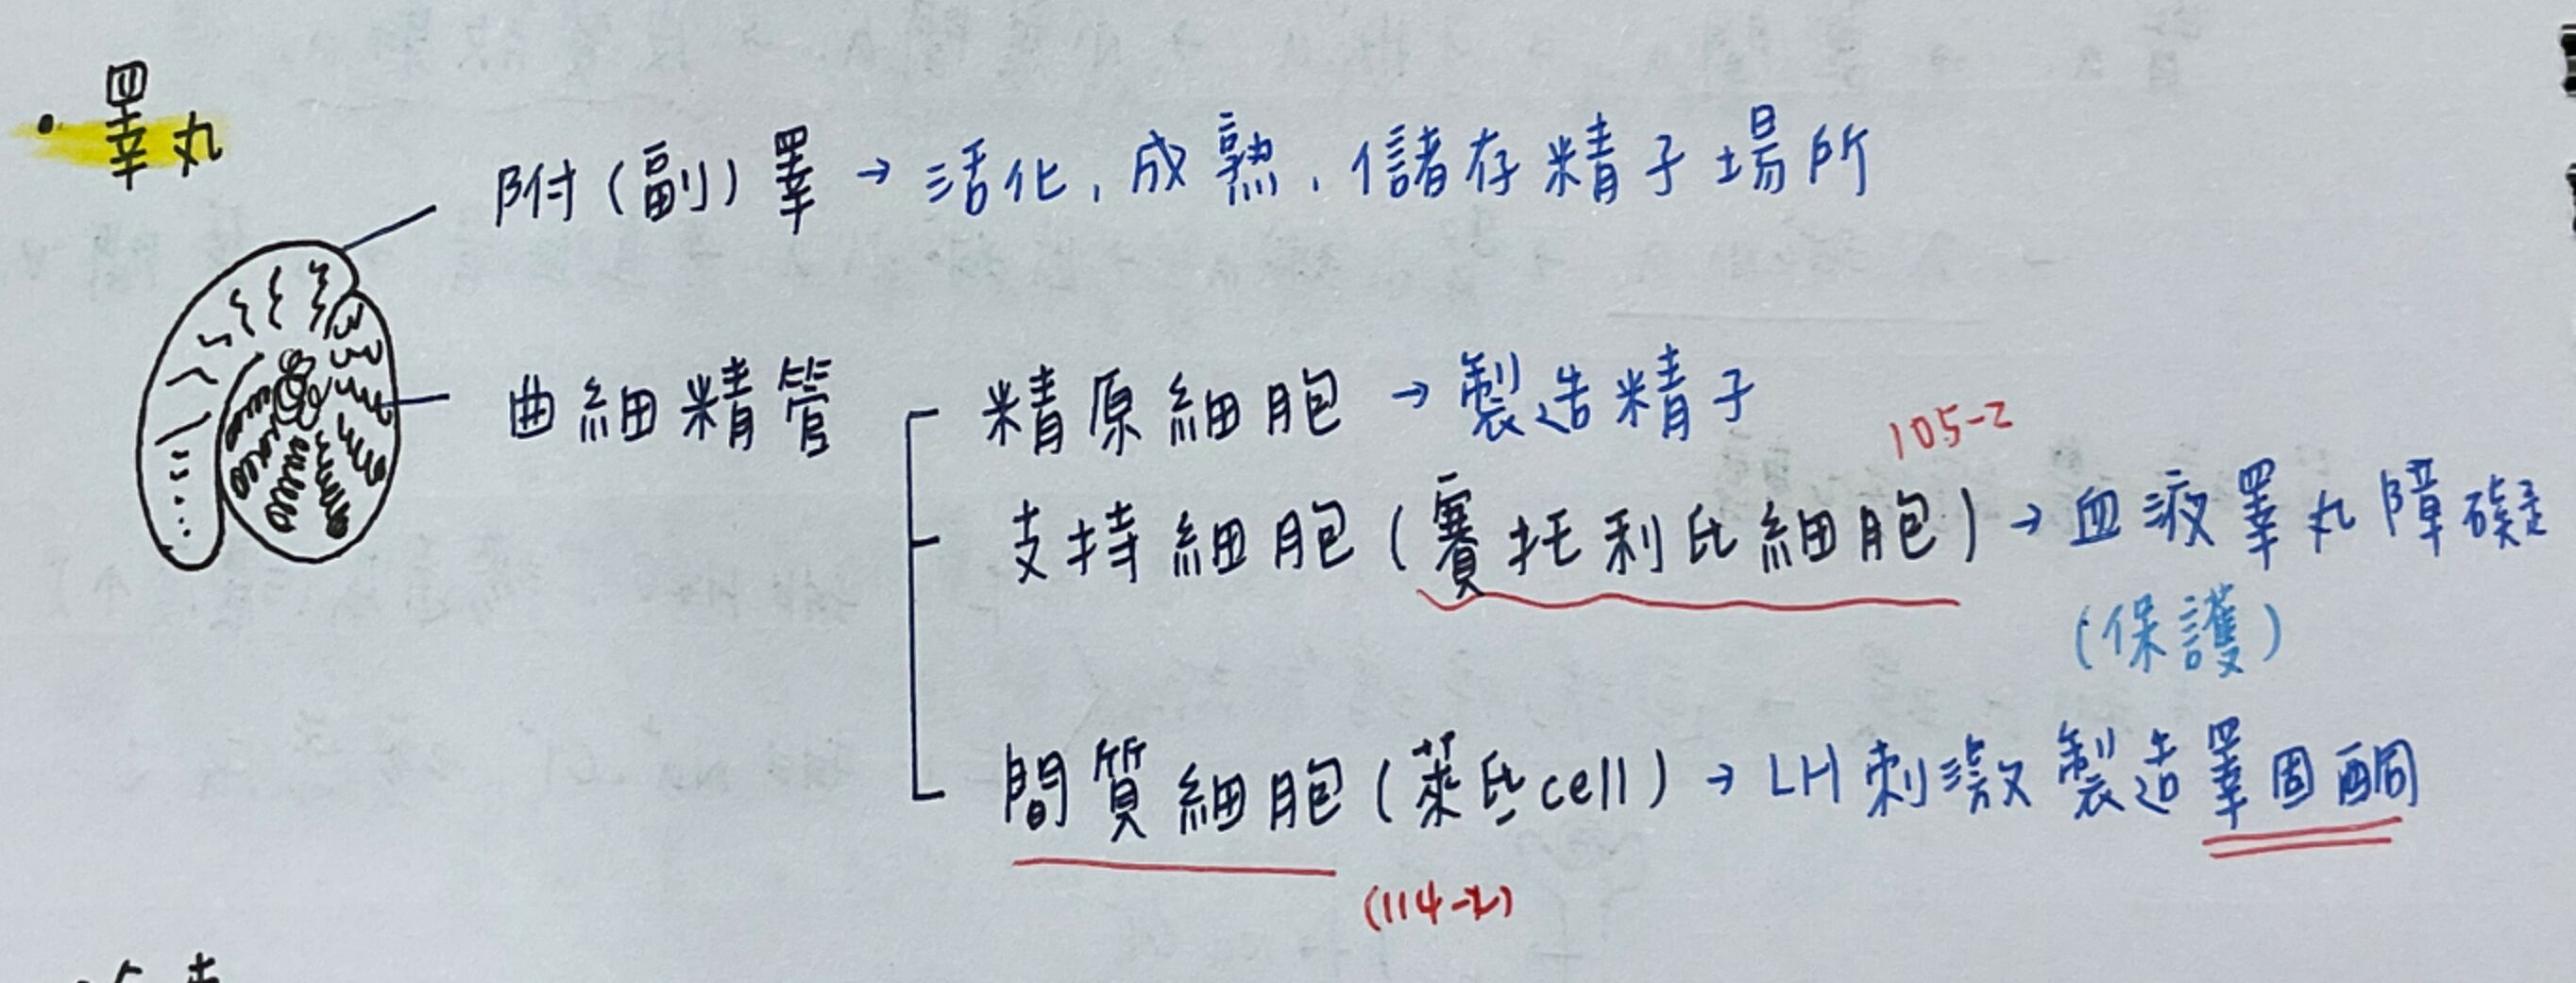 •睪丸
附(副)睪→活化,成熟,儲存精子場所
曲細精管
精原細胞→製造精子
105-2
支持細胞(賽托利氏細胞)→血液睪丸障礙
(保護)
間質細胞(萊氏cell)→LH刺激製造睪固酮
(114-2)